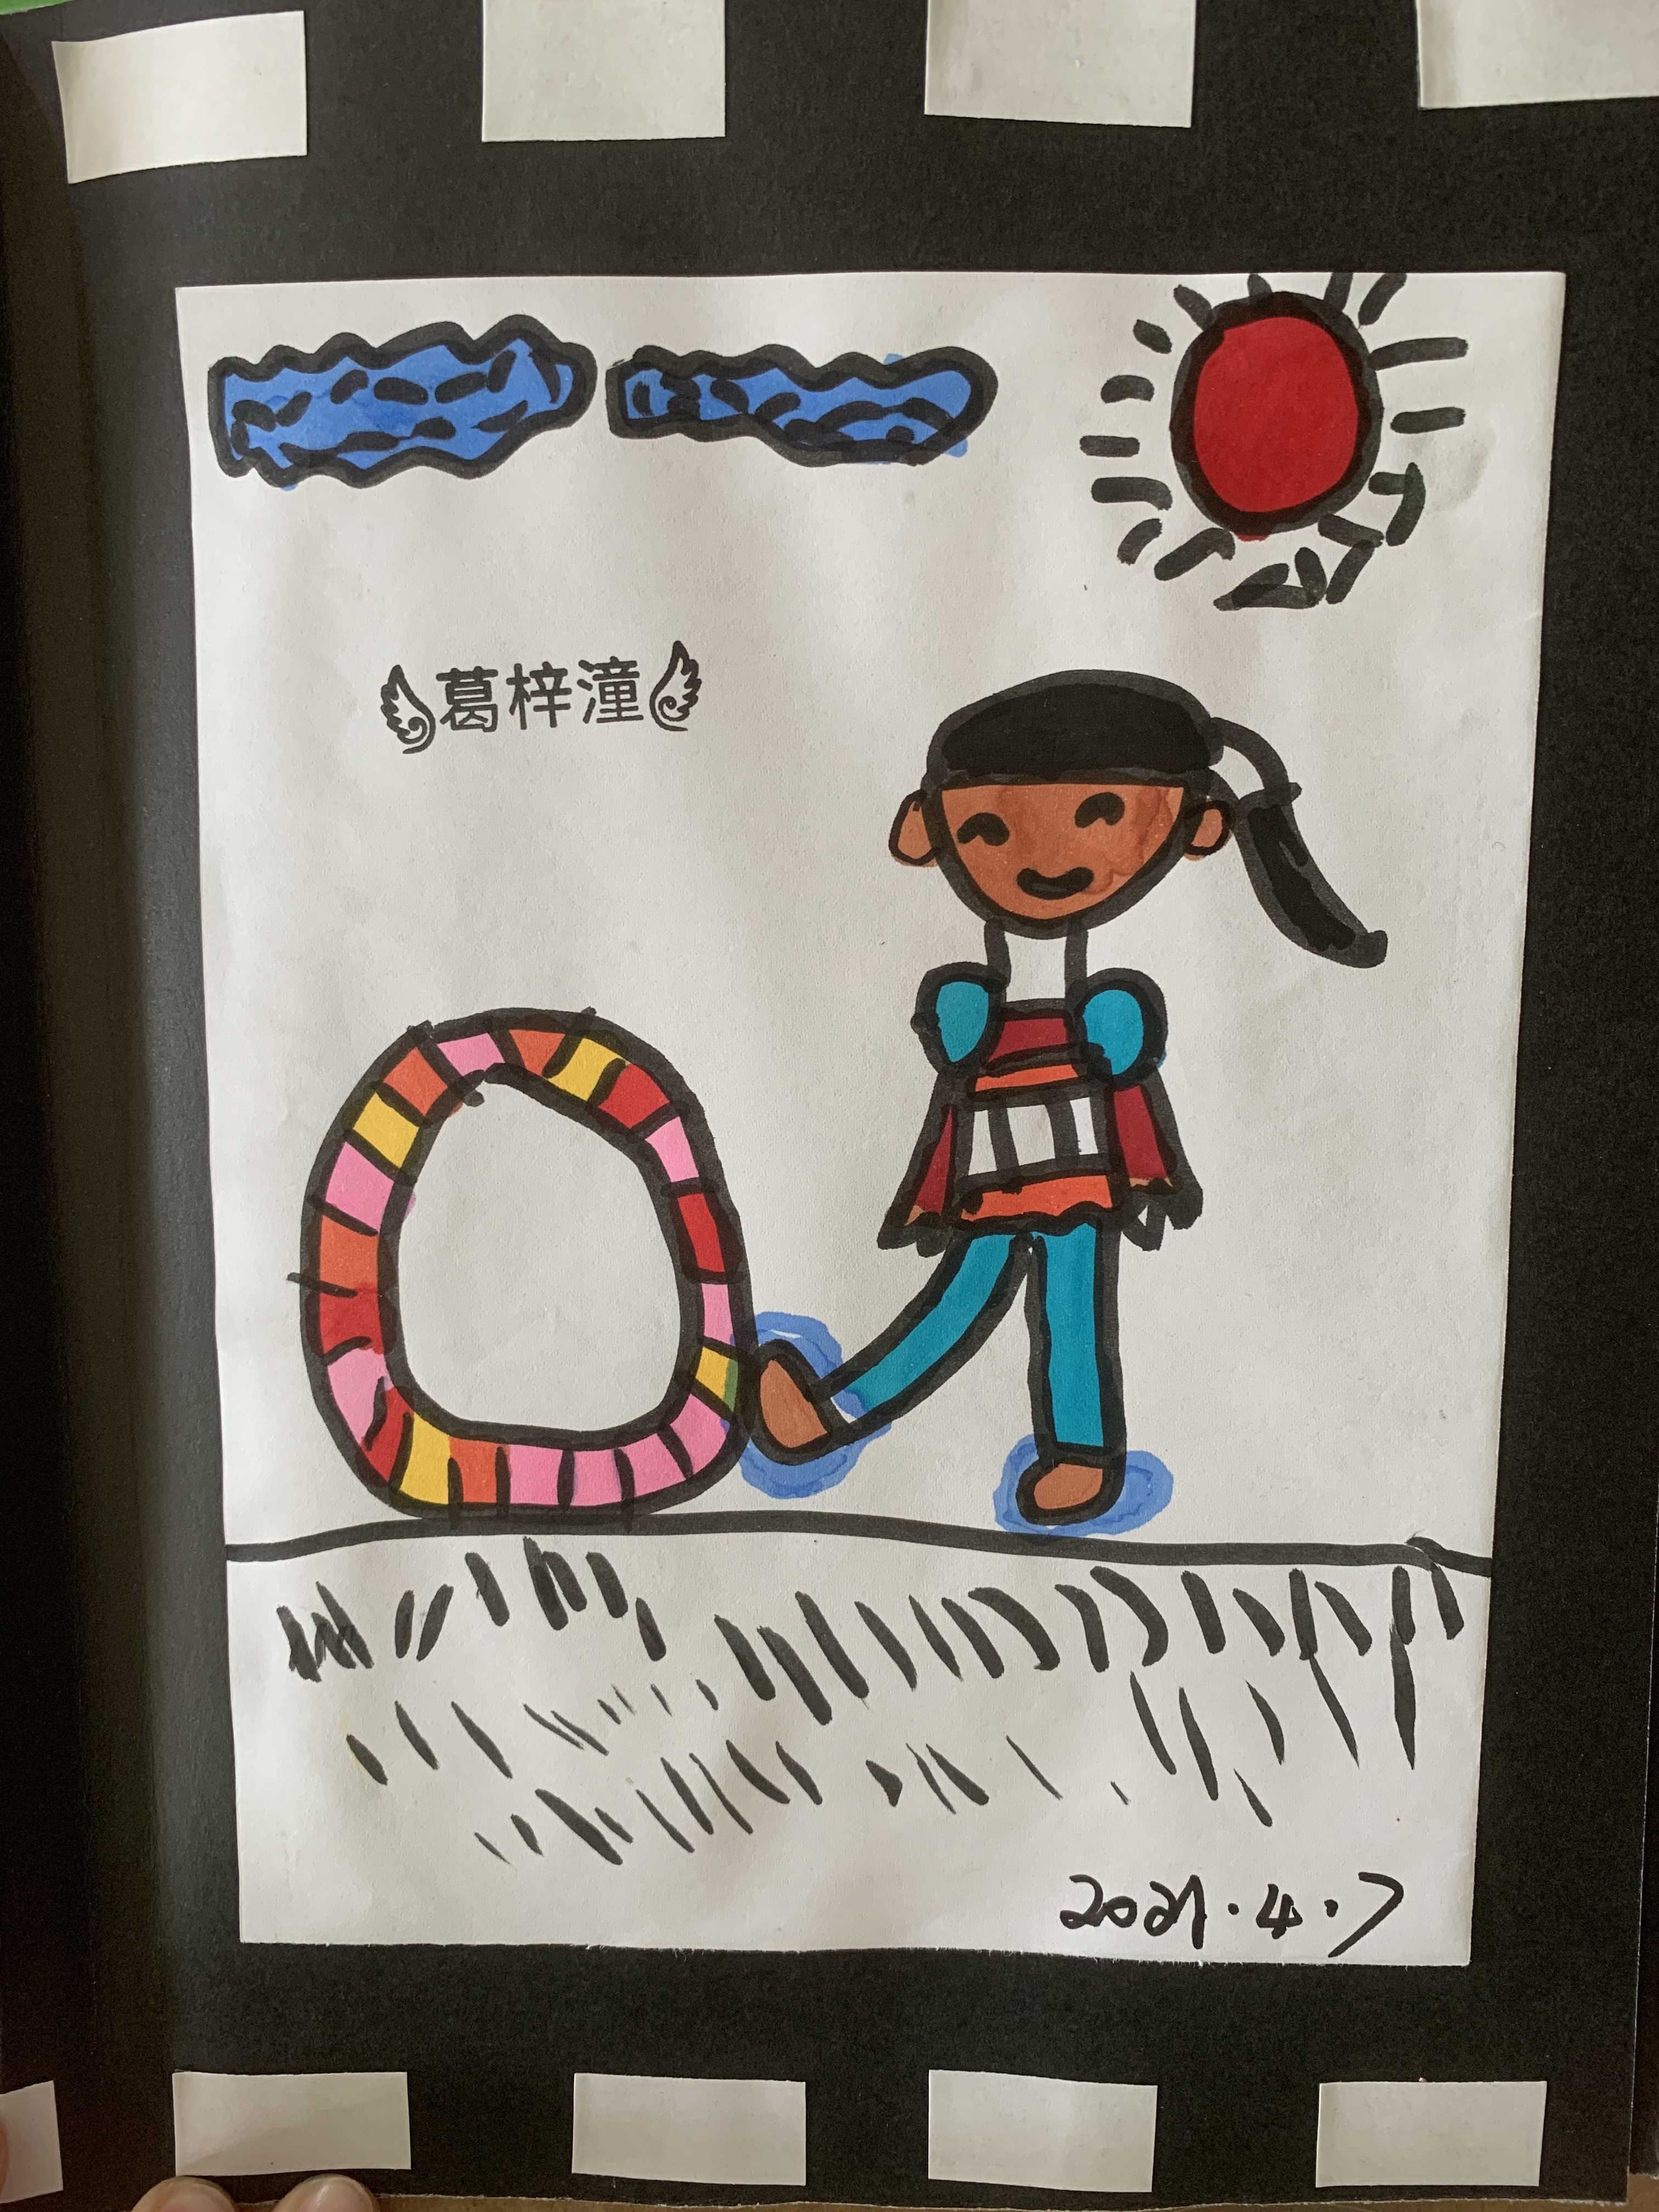 葛梓潼
2021.4.7